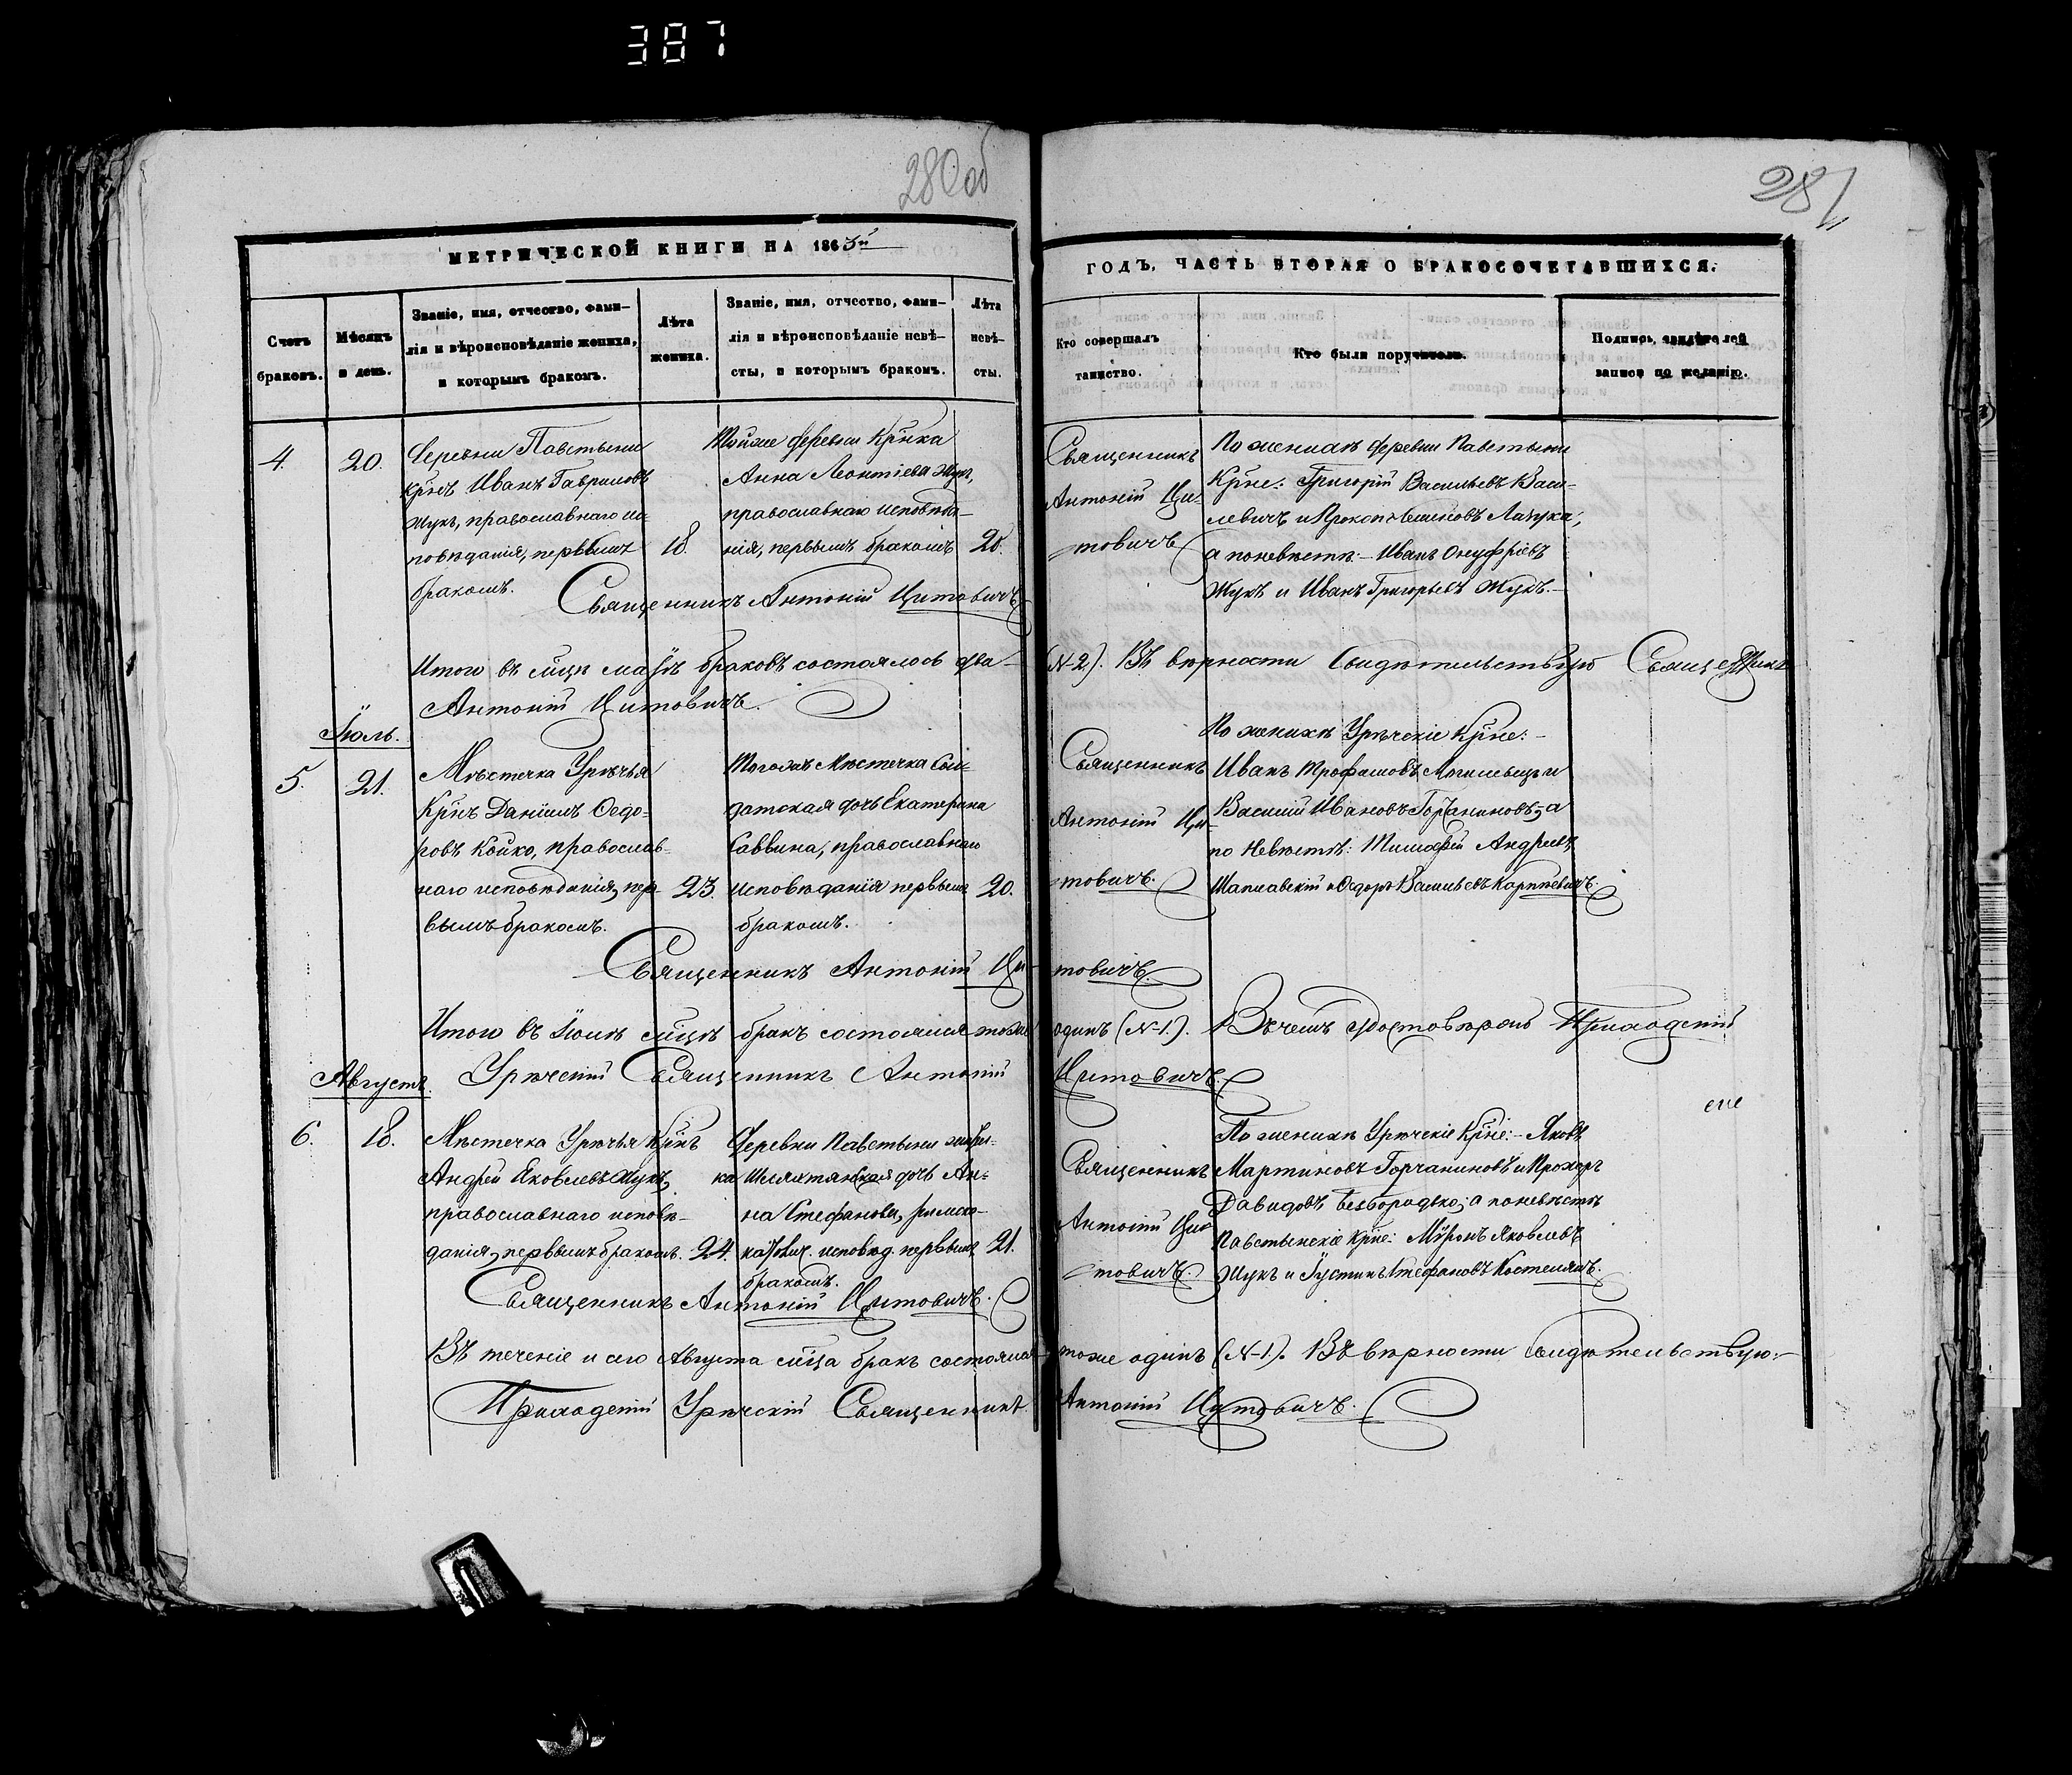 387
280об
281
МЕТРИЧЕСКОЙ КНИГИ НА 1863й
ГОДЪ, ЧАСТЬ ВТОРАЯ О БРАКОСОЧЕТАВШИХСЯ.
Счетъ
браковъ.
Мѣсяцъ
и день.
Званіе, имя, отчество, фами-
лія и вѣроисповѣданіе жениха,
и которымъ бракомъ.
Лѣта
жениха.
Званіе, имя, отчество, фами-
лія и вѣроисповѣданіе невѣ-
сты, и которымъ бракомъ.
Лѣта
невѣ-
сты.
Кто совершалъ
таинство.
Кто были поручители.
Подпись свидѣтелей
записи по желанію.
4.
20.
Деревни Павстыни
Крнъ Иванъ Гавриловъ
Жукъ, православнаго ис-
повѣданія, первымъ
бракомъ.
18.
Тойже деревни Крнка
Анна Леонтіева Жукъ,
православнаго исповѣда-
нія, первымъ бракомъ
20.
Священникъ Антоній Цитовичъ
Священникъ
Антоній Ци-
товичъ
По женихѣ деревни Павстыни
Крне: Григорій Васильевъ Васи-
левичъ и Прокопъ
а поневѣстѣ: Иванъ Онуфріевъ
Жукъ и Иванъ Григорьевъ Жукъ.
Итого въ мцѣ маѣ браковъ состоялось два
(N 2). Въ вѣрности свидѣтельствую Священникъ
Антоній Цитовичъ.
Іюль.
5.
21.
Мѣстечка Урѣчья
Крнъ Даніилъ Ѳедо-
ровъ Койко, православ-
наго исповѣданія, пер-
вымъ бракомъ.
23.
Тогожъ Мѣстечка Сол-
датская дочь Екатерина
Саввина, православнаго
исповѣданія первымъ
бракомъ.
20.
Священникъ Антоній Ци-
товичъ.
Священникъ
Антоній Ци-
товичъ.
По женихѣ Урѣчскіе Крне:
Иванъ Трофимовъ и
Василій Ивановъ Горчаниновъ, а
по Невѣстѣ: Тимофей Андреевъ
Шапиавскій и Ѳедоръ Васильевъ Карпиевичъ
Итого въ Іюлѣ мцѣ бракъ состоялся тоже
одинъ (N 1). Въ чемъ удостовѣряю Приходскій
Урѣчскій Священникъ Антоній
Цитовичъ.
Августъ.
6.
18.
Мѣстечка Урѣчья Крнъ
Андрей Яковлевъ Жукъ,
православнаго исповѣ-
данія, первымъ бракомъ.
24.
Деревни Павстыни
ка Шляхтянская дочь Ан-
на Стефанова, римско-
каѳолич. исповѣд. первымъ
бракомъ.
21.
Священникъ Антоній Цитовичъ.
Священникъ
Антоній Ци-
товичъ.
По женихѣ Урѣчскіе Крне: Яковъ
Мартиновъ Горчаниновъ и Прохоръ
Давидовъ Безбородько; а поневѣстѣ
Павстынскіе Крне: Миронъ Яковлевъ
Жукъ и Густинъ Стефановъ
Въ теченіе и сего Августа мца бракъ состоялся
тоже одинъ (N 1). Въ вѣрности свидѣтельствую:
Приходскій Урѣчскій Священникъ
Антоній Цитовичъ.